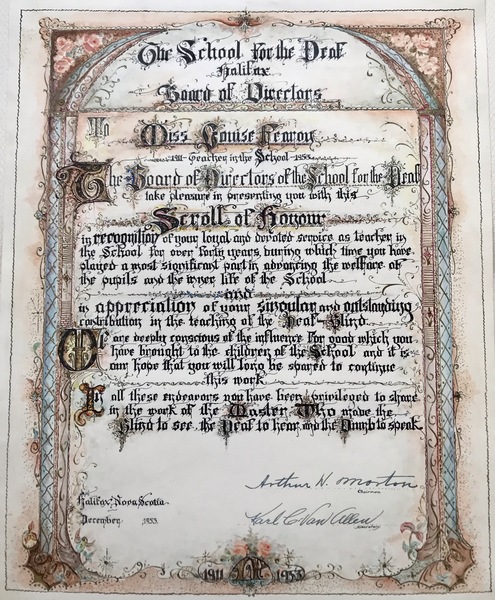 The School for the Deaf
Halifax
Board of Directors
To
Miss Louise Fearon
1911-Teacher in the School-1953
The Board of Directors of the School for the Deaf
take pleasure in presenting you with this
Scroll of Honour
in recognition of your loyal and devoted service as teacher in
the School for over forty years, during which time you have
played a most significant part in advancing the welfare of
the pupils and the inner life of the School
and
in appreciation of your singular and outstanding
contribution in the teaching of the Deaf-Blind.
We are deeply conscious of the influence for good which you
have brought to the children of the School and it is
our hope that you will long be spared to continue
this work
In all these endeavors you have been privileged to share
in the work of the Master Who made the
Blind to see, the Deaf to hear, and the Dumb to speak.
Arthur N. Morton
Chairman
Halifax, Nova Scotia
December, 1953.
Karl C Van Allen
Secretary
1911 1953